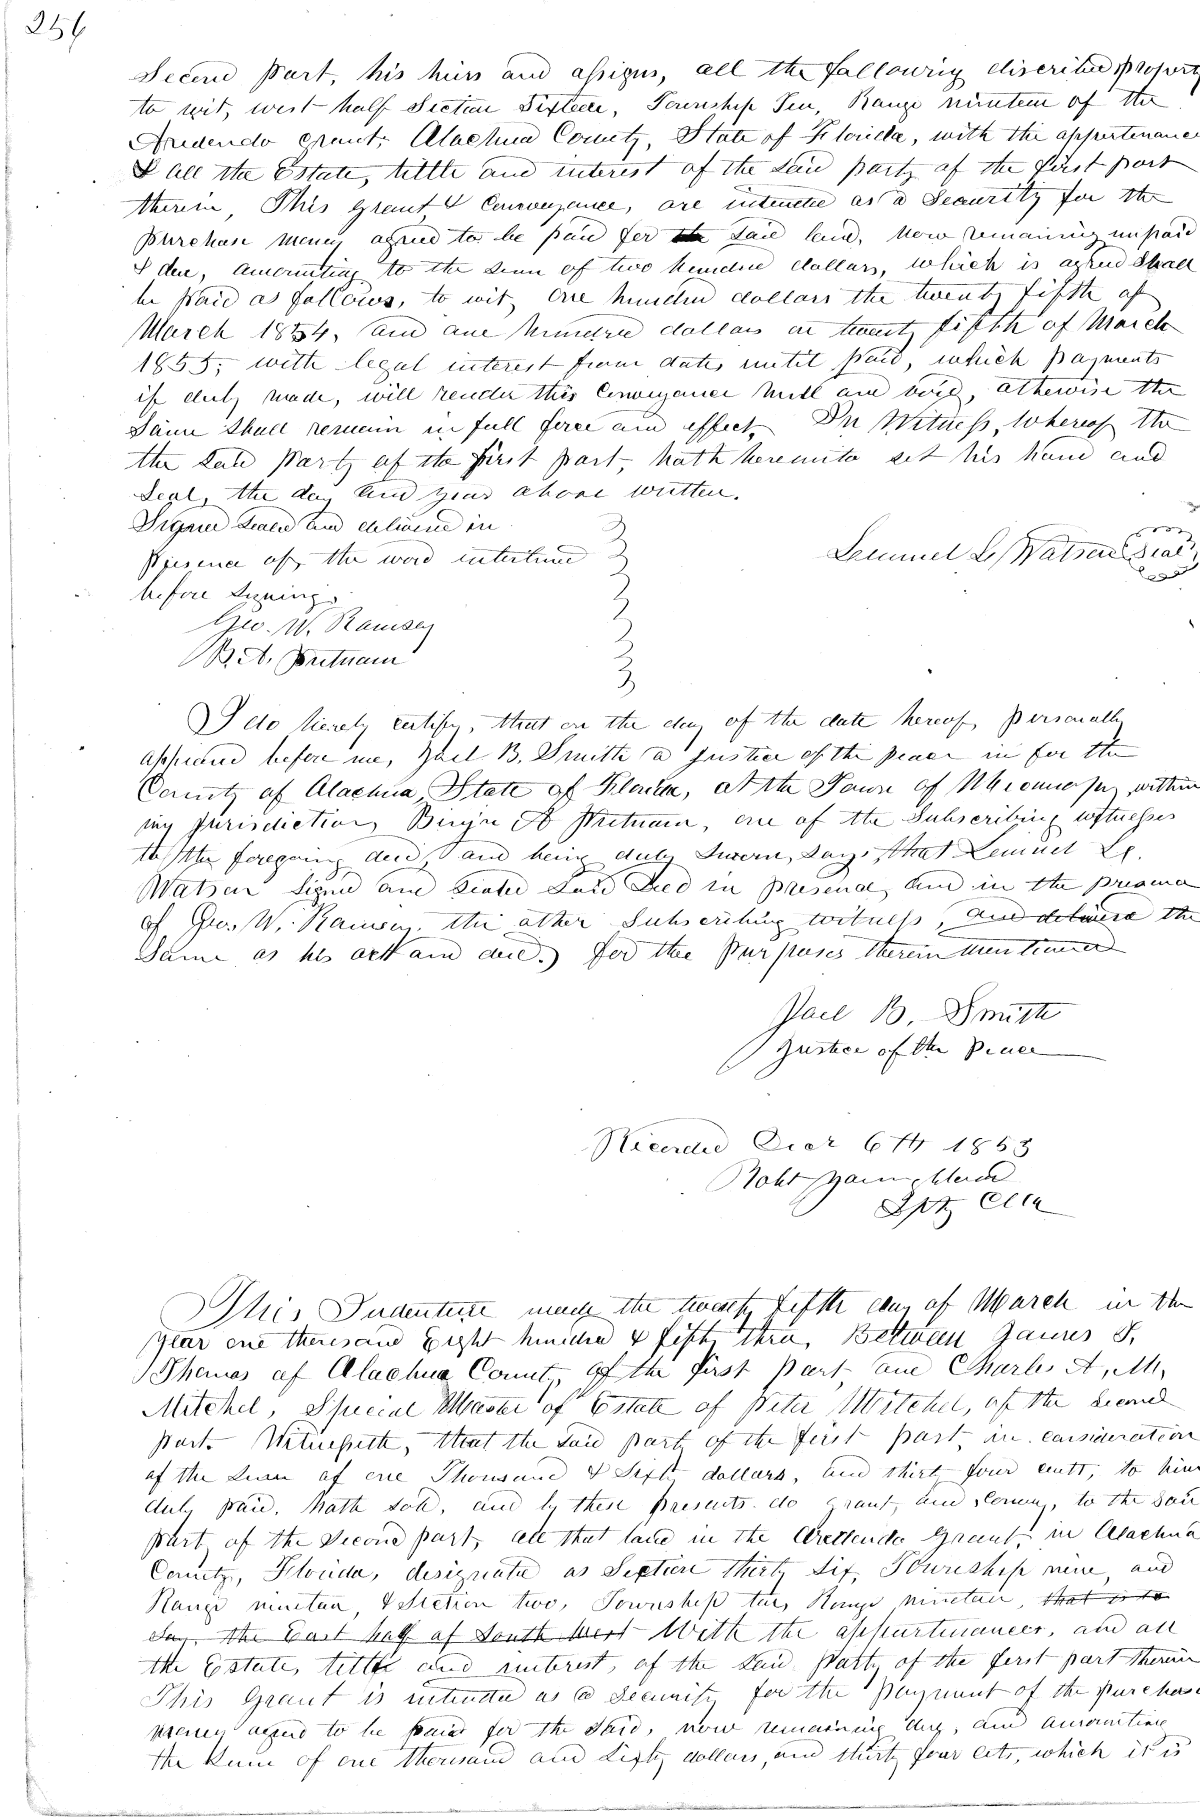 256
Second part, his heirs and assigns, all the following discribed property
to wit, west half Section Sixteen, Township Ten, Range nineteen of the
Arredendo grant, Alachua County, State of Florida, with the appertenance
& all the Estate, tittle and interest of the said party of the first part
therein, This grant & Conveyance, are intended as a Security for the
purchase money agreed to be paid for the said land, now remaining unpaid
& due, amounting to the sum of two hundred dollars, which is agreed shall
be paid as follows, to wit, one hundred dollars the twenty fifth of
March 1854, and one hundred dollars on twenty fifth of March
1855; with legal interest from date, until paid, which payments
if duly made, will render this Conveyance null and void, otherwise the
Same shall remain in full force and effect, In Witness, whereof the
the said Party of the first part, hath hereunto set his hand and
Seal, the day and year above written.
Signed Sealed and delivered in
Presence of, the word interlined
before signing,
Lemuel L. Watson Seal
Geo. W. Ramsey
B. A. Putnam
I do hereby certify, that on the day of the date hereof, personally
appeared before me, Joel B. Smith a Justice of the peace in for the
County of Alachua, State of Florida, at the Town of within
my jurisdiction, Benjn A Putnam, one of the Subscribing witnesses
to the foregoing deed, and being duly sworn, says, that Lemuel L.
Watson Signed and Sealed said Deed in presence, and in the presence
of Geo. W. Ramsey, the other Subscribing witness, and delivered the
Same as his act and deed, for the purposes therein mentioned
Joel B. Smith
Justice of the Peace
Recorded Decr 6th 1853
Robt Youngblood
Dpty Clk
This Indenture made the twenty fifth day of March in the
year one thousand Eight hundred & fifty three, Between James T.
Thomas of Alachua County, of the first part, and Charles A, M,
Mitchel, Special Master of Estate of Peter Mitchel, of the second
part. Witnesseth, that the said party of the first part, in consideration
of the sum of one Thousand & Sixty dollars, and thirty four cents, to him
duly paid, hath sold, and by these presents do grant, and convey, to the said
party of the second part, all that land in the Arredendo Grant, in Alachua
County, Florida, designated as Section thirty Six, Township nine, and
Range nineteen, & Section two, Township ten, Range nineteen, that is to
say, the East half of South West With the appurtenances, and all
the Estate, tittle and interest, of the said Party of the first part therein
This Grant is intended as a Security for the payment of the purchase
money agreed to be paid for the said, now remaining due, and amounting
the sum of one thousand and Sixty dollars, and thirty four cts, which it is